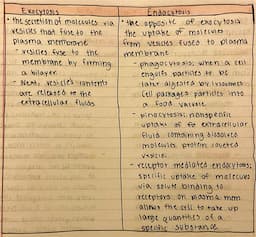 Exocytosis
• the secretion of molecules via
vesicles that fuse to the
plasma membrane
- vesicles fuse to the
membrane by forming
a bilayer
- Next, vesicles contents
are released to the
extracellular fluids
Endocytosis
• the opposite of exocytosis
the uptake of molecules
from vesicles fused to plasma
membrane
- phagocytosis; when a cell
engulfs particles to be
later digested by lysosomes
cell packages particles into
a food vacuole
- pinocytosis; nonspecific
uptake of extracellular
fluid containing dissolved
molecules. protein coated
vesicle
- receptor mediated endocytosis;
specific uptake of molecules
via solute binding to
receptors on plasma mem
allows the cell to take up
large quantities of a
specific substance